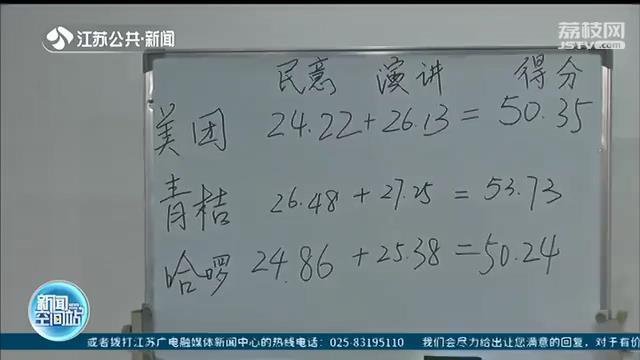 江苏公共·新闻
荔枝网
JSTV.com
民意 演讲 得分
美团 24.22+26.13=50.35
青桔 26.48+27.25=53.73
哈啰 24.86+25.38=50.24
新闻
空间站
或者拨打江苏广电融媒体新闻中心的热线电话：025-83195110 我们会尽力给出让您满意的回复，对于有价